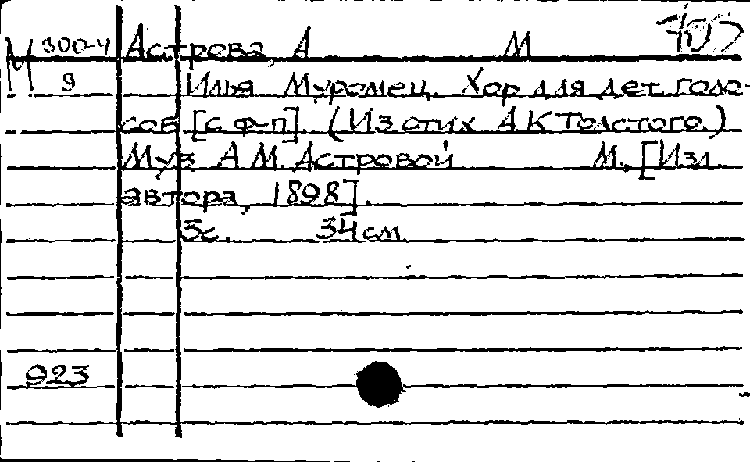 М 300-4 Астрова, А М 705
9 Илья Муромец. Хор для дет. голо-
сов [с ф-п]. (Из стих А К Толстого.)
Муз А.М. Астровой М., [Изд.
автора, 1898].
3с. 34 см.
923